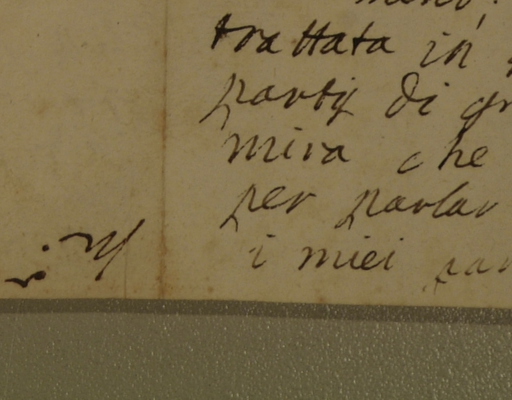 trattata in
party di
mira che
per parlar
i miei